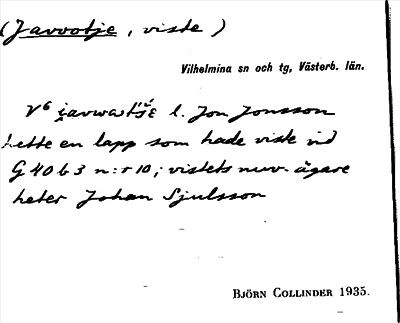 (Javvotje, viste)
Vilhelmina sn och tg, Västerb. län.
l. Jon Jonsson
hette en lapp som hade viste vid
G 40 b 3 n:r 10; vistets nuv. ägare
heter Johan Sjulsson
BJÖRN COLLINDER 1935.